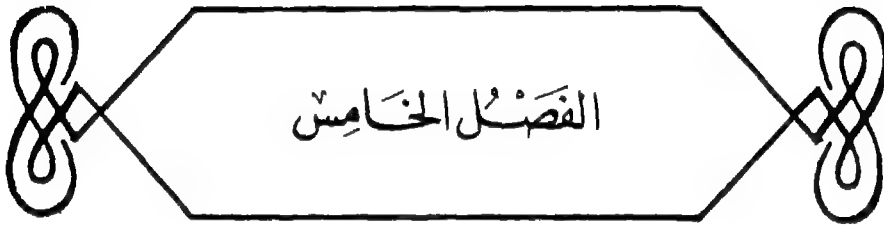 الفَصْلُ الخَامِسْ